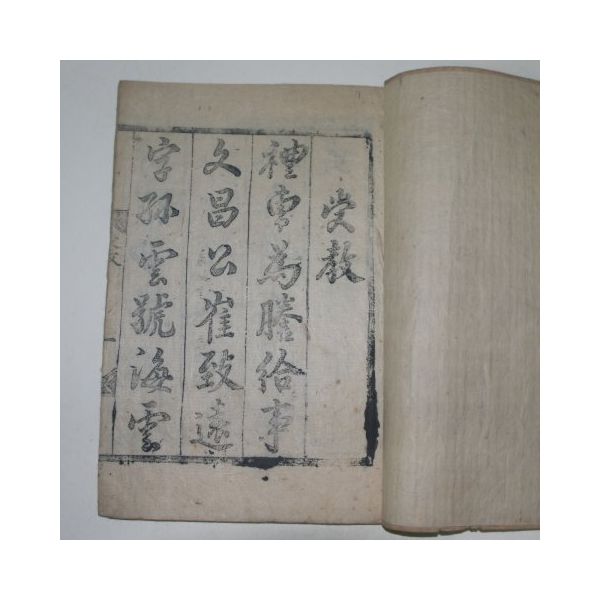 受教
禮曺為謄給事
文昌公崔致遠
字孤雲號海雲